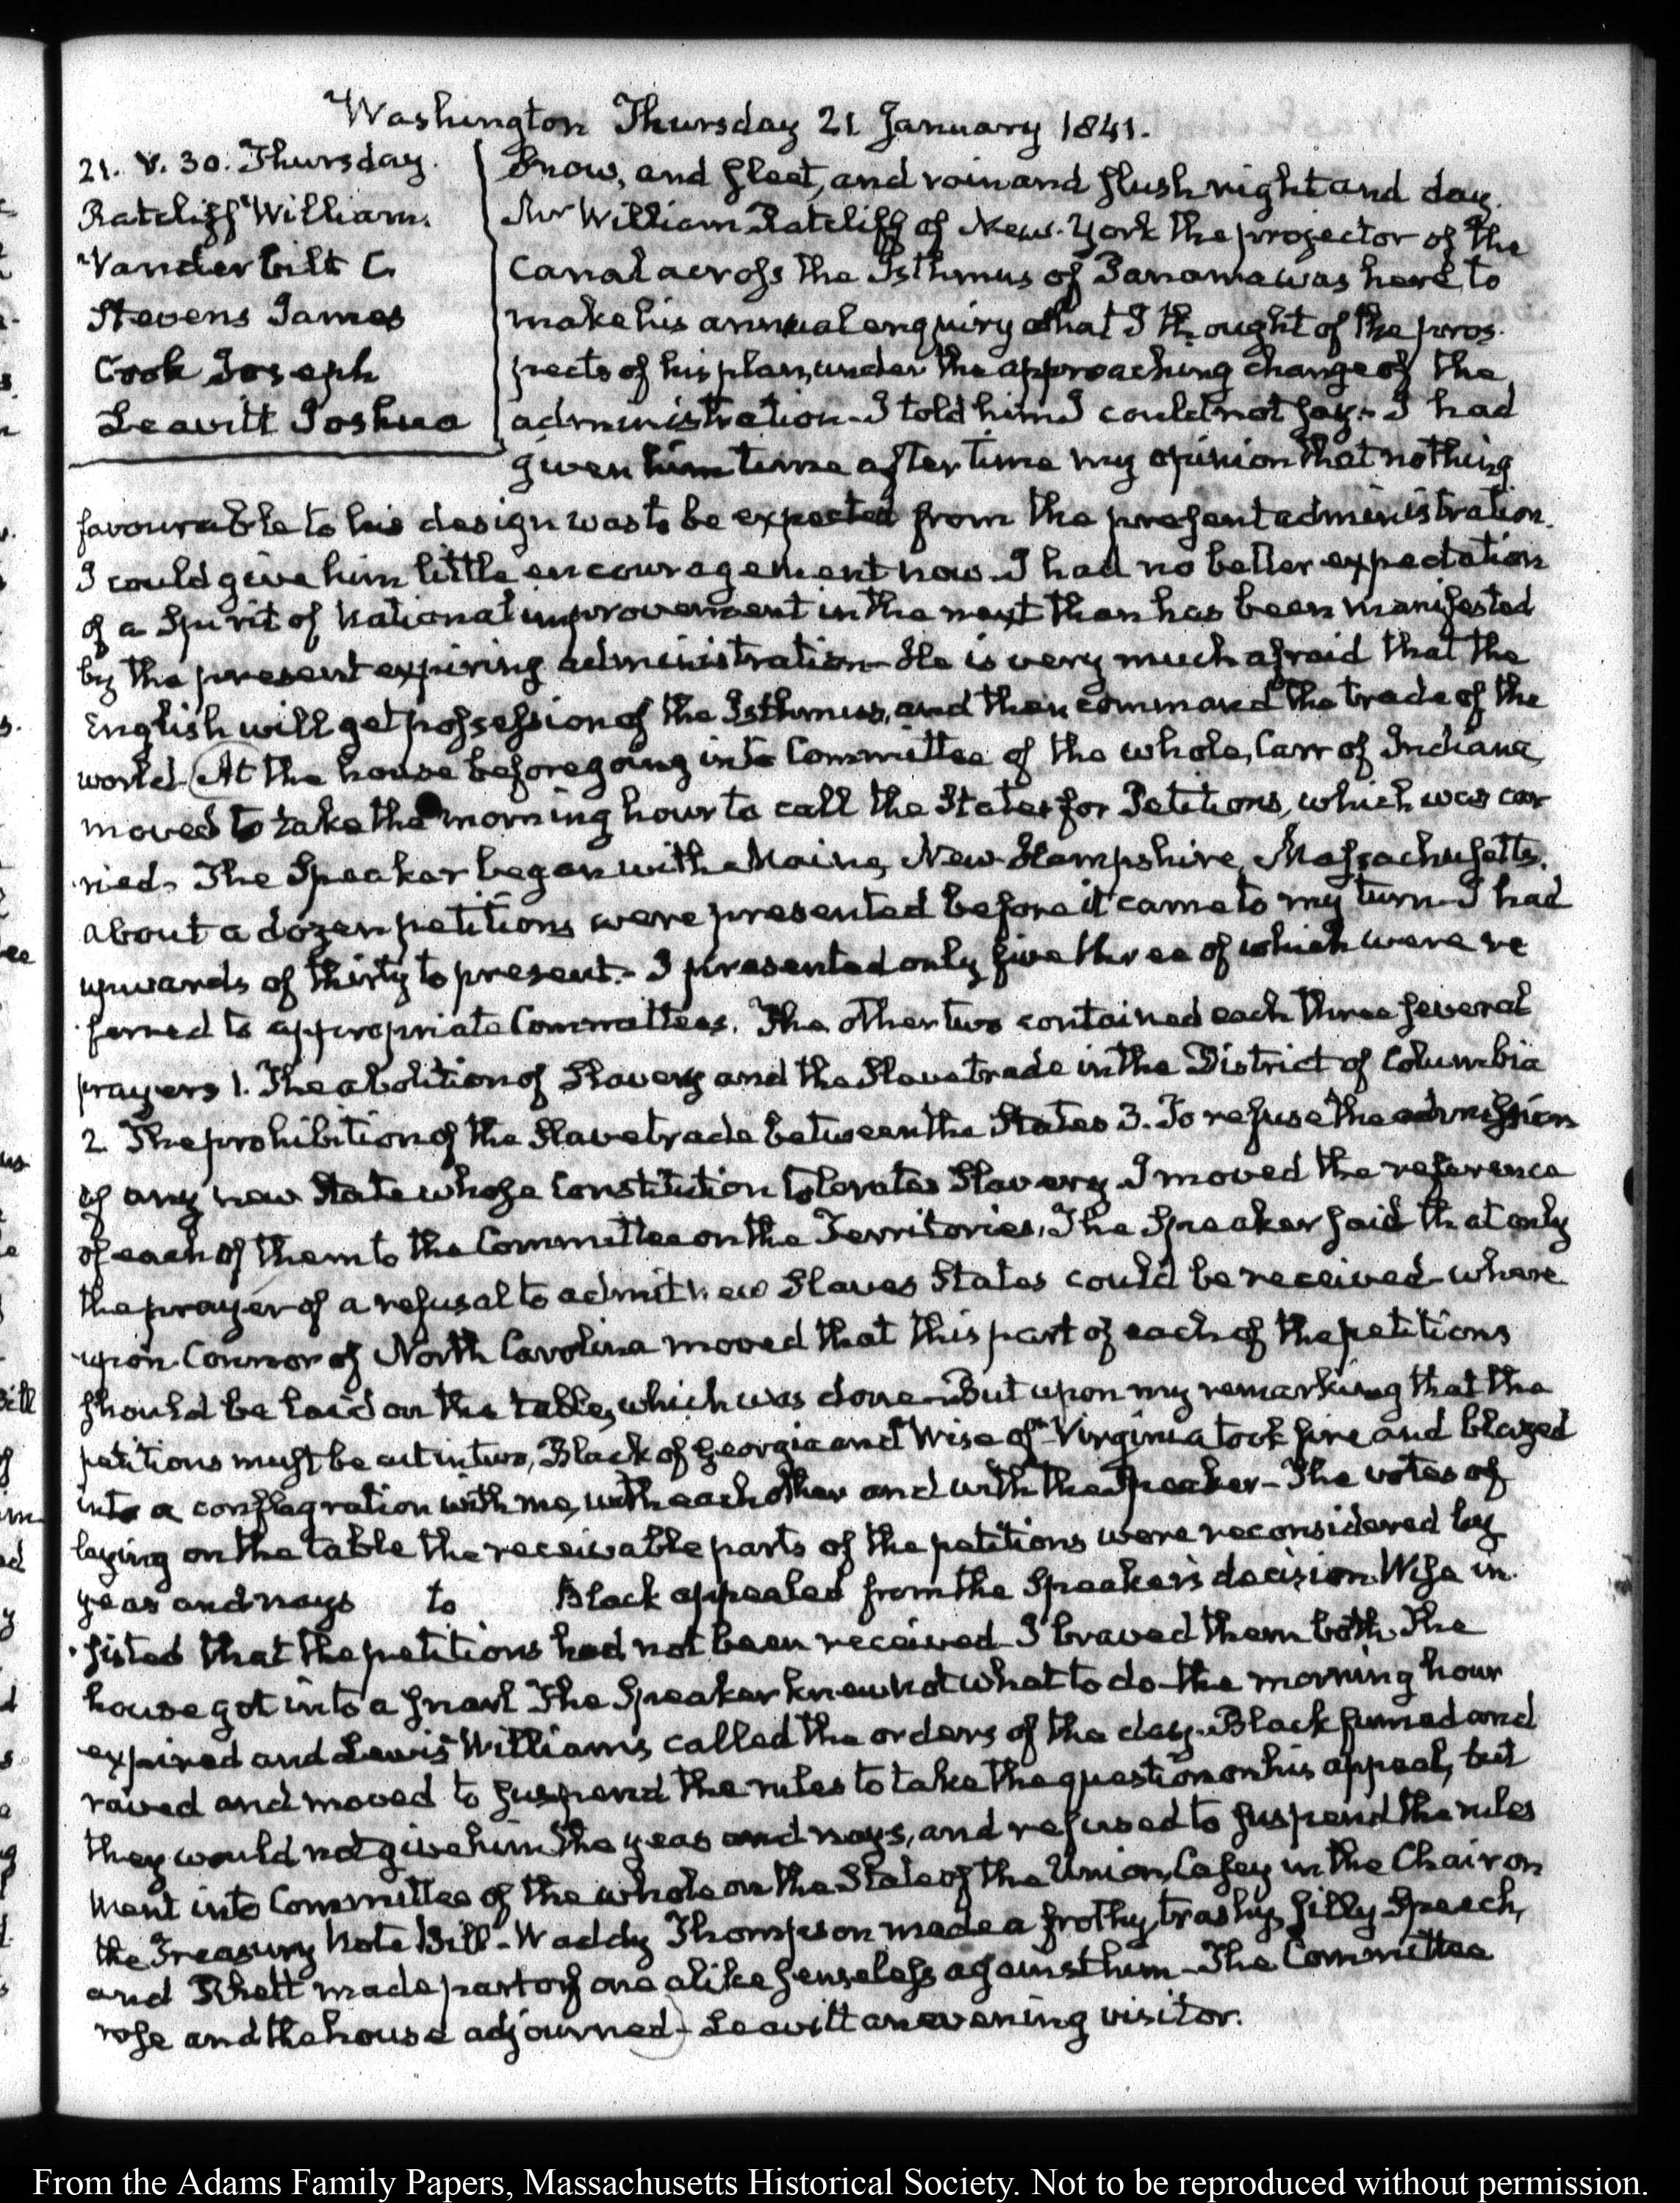 Washington Thursday 21 January 1841.
21. V. 30. Thursday.
Ratcliff William.
Vanderbilt C.
Stevens James
Cook Joseph
Leavitt Joshua
Snow, and sleet, and rain and slush night and day.
Mr William Ratcliff of New-York the projector of the
canal across the Isthmus of Panama was here, to
make his annual enquiry what I thought of the pros-
pects of his plan, under the approaching change of the
administration. I told him I could not say. I had
given him time after time my opinion that nothing
favourable to his design was to be expected from the present administration.
I could give him little encouragement now. I had no better expectation
of a Spirit of National improvement in the next than has been manifested
by the present expiring administration— He is very much afraid that the
English will get possession of the Isthmus, and then command the trade of the
world. At the house before going into Committee of the whole, Carr of Indiana
moved to take the morning hour to call the States for Petitions, which was car
-ried. The Speaker began with Maine, New-Hampshire, Massachusetts.
about a dozen petitions were presented before it came to my turn— I had
upwards of thirty to present.— I presented only five three of which were re
-ferred to appropriate Committees. The other two contained each three several
prayers 1. The abolition of Slavery and the Slave trade in the District of Columbia
2. The prohibition of the Slave trade between the States 3. To refuse the admission
of any new State whose Constitution tolerates Slavery. I moved the reference
of each of them to the Committee on the Territories. The Speaker said that only
the prayer of a refusal to admit new Slaves States could be received— where
-upon Connor of North Carolina moved that this part of each of the petitions
should be laid on the table, which was done— But upon my remarking that the
petitions must be cut in two, Black of Georgia and Wise of Virginia took fire and blazed
into a conflagration with me, with each other and with the Speaker— The votes of
laying on the table the receivable parts of the petitions were reconsidered by
yeas and nays to Black appealed from the Speaker's decision. Wise in
-sisted that the petitions had not been received— I braved them both. The
house got into a snarl The Speaker knew not what to do— the morning hour
expired and Lewis Williams called the orders of the day. Black fumed and
raved and moved to suspend the rules to take the question on his appeal, but
they would not give him the yeas and nays, and refused to suspend the rules
Went into Committee of the whole on the State of the Union, Casey in the Chair on
the Treasury Note Bill— Waddy Thompson made a frothy, trashy, silly Speech,
and Rhett made part of one alike senseless against him— The Committee
rose and the house adjourned— Leavitt an evening visitor.
From the Adams Family Papers, Massachusetts Historical Society. Not to be reproduced without permission.